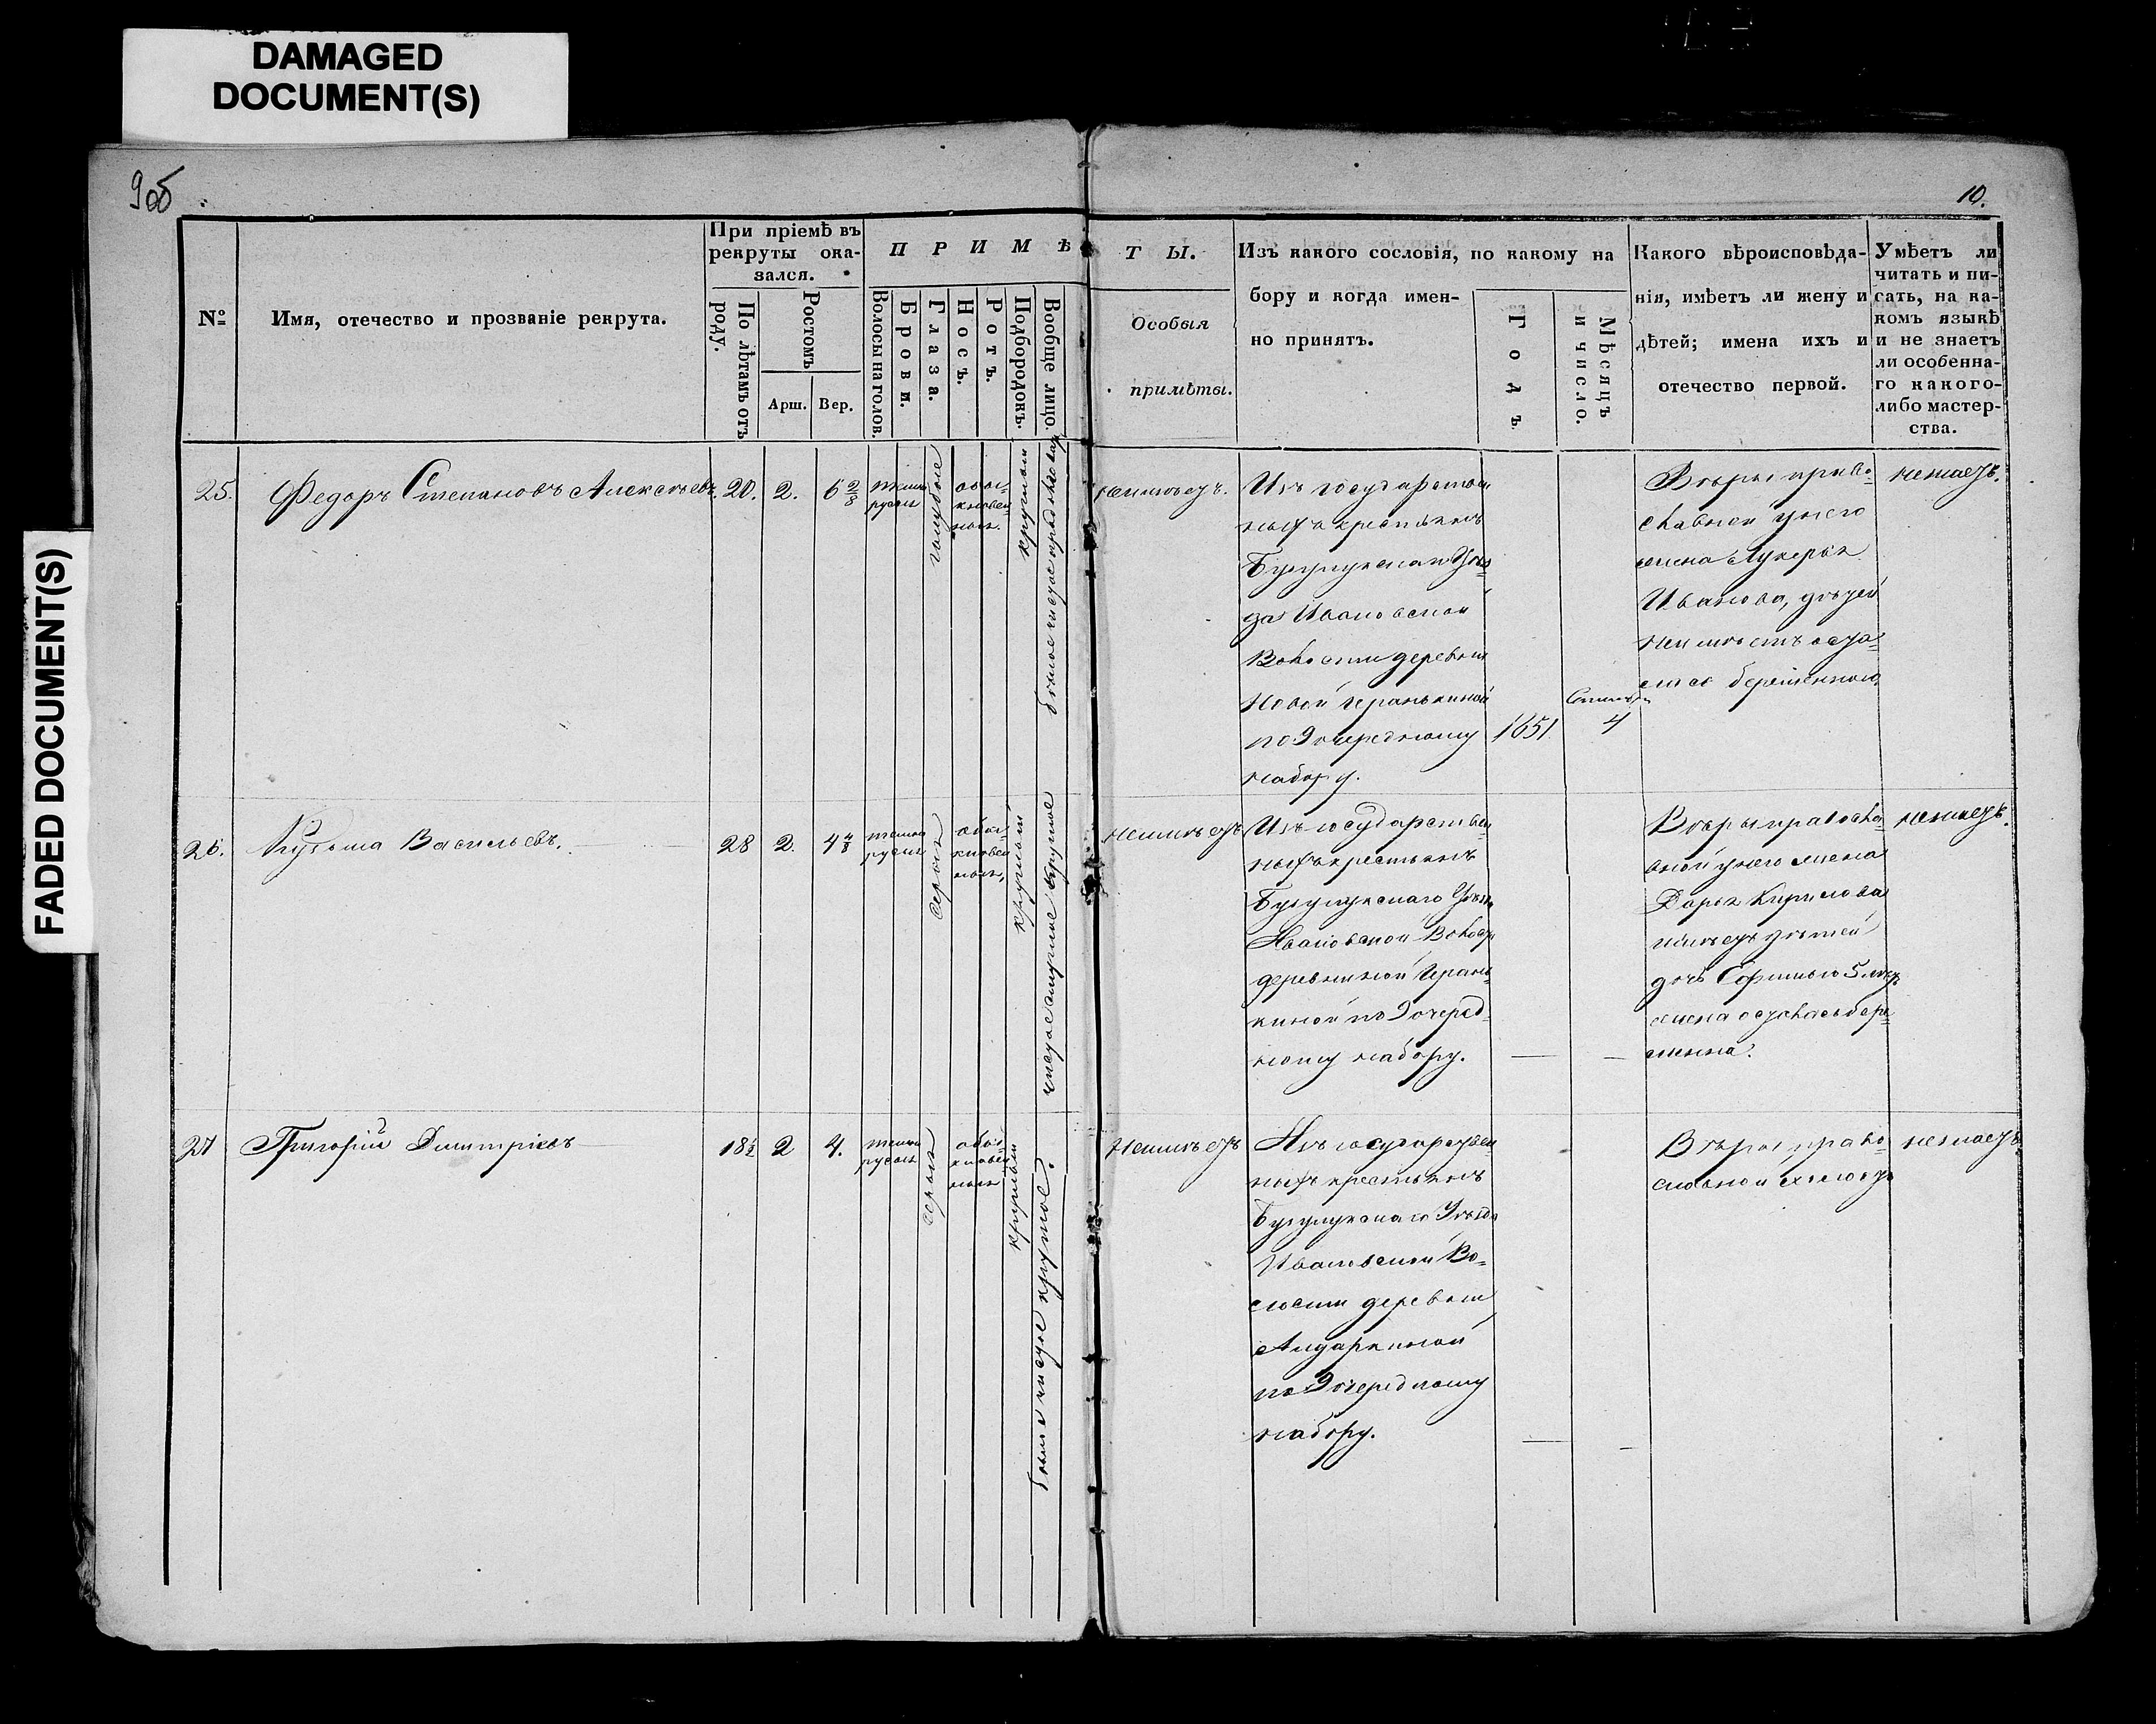 DAMAGED
DOCUMENT(S)
FADED DOCUMENT(S)
9об
10.
№
Имя, отечество и прозваніе рекрута.
При пріемѣ въ
рекруты ока-
зался.
По лѣтамъ отъ
роду.
Ростомъ
Арш.
Вер.
ПРИМѢ
ТЫ.
Волосы на голов.
Брови.
Глаза.
Носъ.
Ротъ.
Подбородокъ.
Вообще лицо.
Особыя
примѣты.
Изъ какого сословія, по какому на
бору и когда имен-
но принятъ.
Годъ.
Мѣсяцъ
и число.
Какого вѣроисповѣда-
нія, имѣетъ ли жену и
дѣтей; имена ихъ и
отечество первой.
Умѣетъ ли
читать и пи-
сать, на ка-
комъ языкѣ
и не знаетъ
ли особенна-
го какого-
либо мастер-
ства.
25.
Федоръ Степановъ Алексѣевъ
20.
2.
6 2/8
темно
русые
голубые
обык-
новен-
ные.
круглый
неимѣетъ.
Изъ государствен
ныхъ крестьянъ
Бузулукскаго Уѣз-
да Ивановской
Волости деревни
Новой Геранькиной
по 9 очередному
набору.
1851
4
Вѣры право-
славной у него
жена Лукерья
Иванова, дѣтей
неимѣетъ оста-
лась беременною.
незнаетъ.
26.
Кузьма Васильевъ.
28
2.
4 4/8
темно
русые
серые
обык-
новен
ные,
круглый
чистое смуглое круглое
неимѣетъ
Изъ государствен-
ныхъ крестьянъ
Бузулукскаго Уѣзда
Ивановской Волости
киной по 9 очеред-
ному набору.
Вѣры правосла-
вной у него жена
Дарья Кирилова
имѣетъ дѣтей
жена осталась бере-
менна.
незнаетъ.
27
Григорій Дмитріевъ
18½
2
4.
темно
русые
серые
обык-
новен
ные
круглый
белое чистое круглое.
Неимѣетъ
Изъ государствен-
ныхъ крестьянъ
Бузулукскаго Уѣзда
Ивановской Во-
лости деревни
по 9 очередному
набору.
Вѣры право
славной холостъ
незнаетъ.